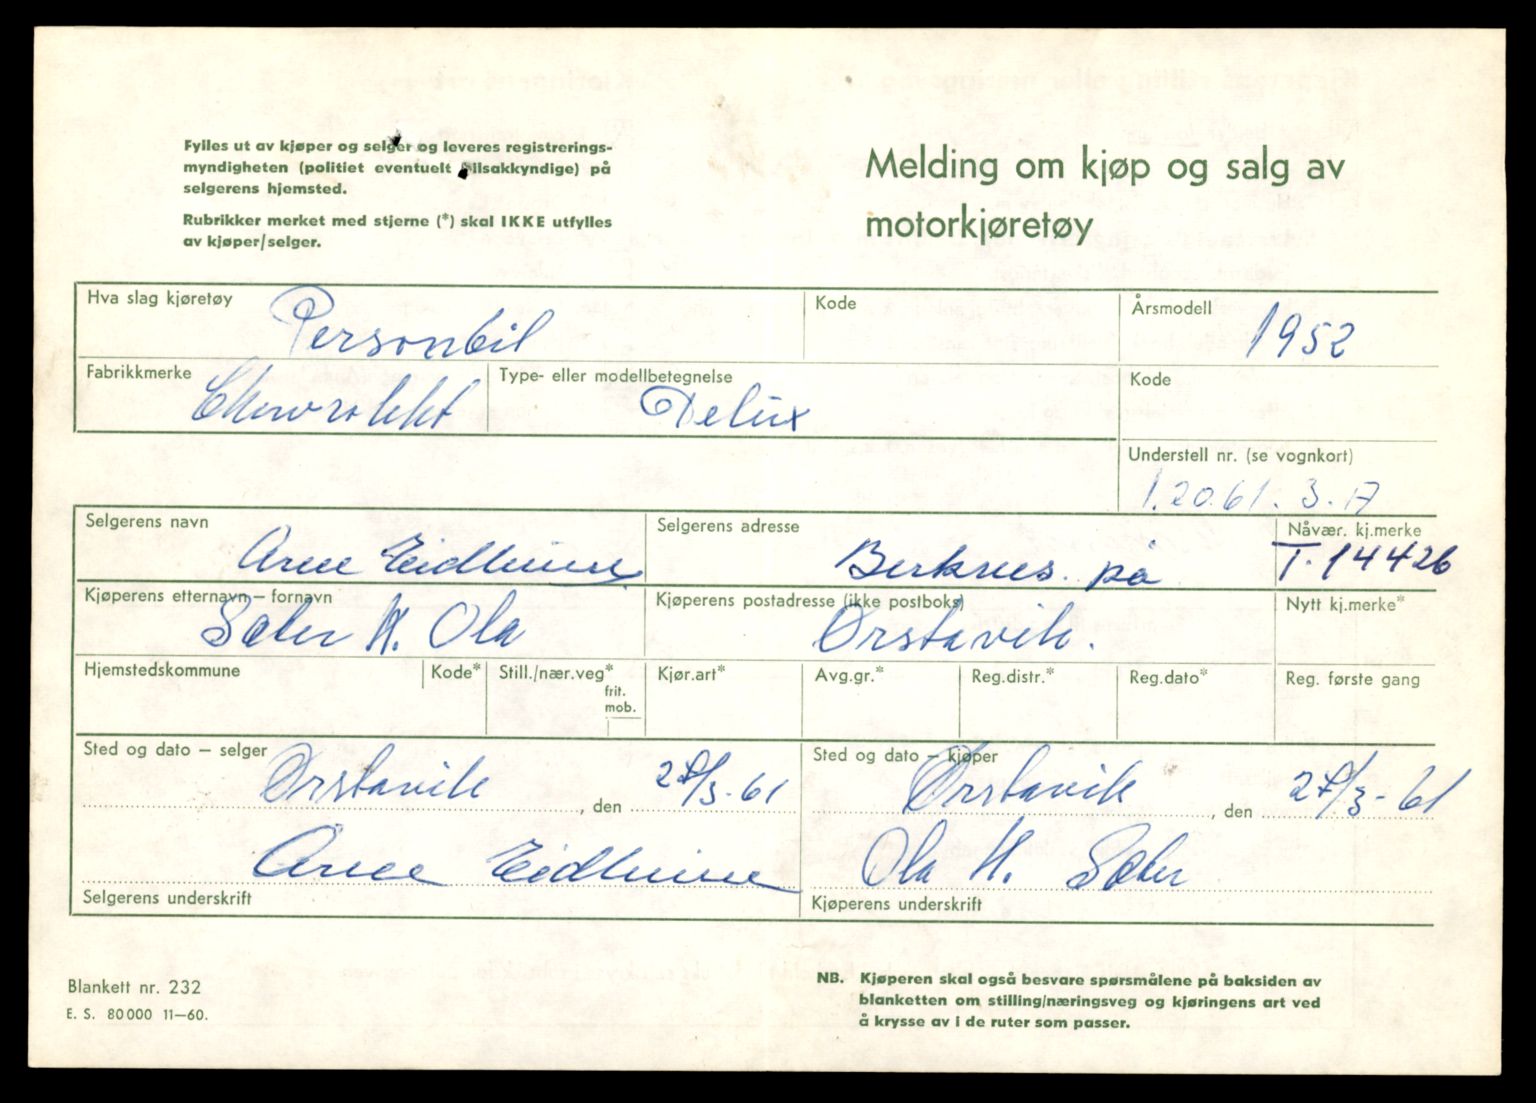 Fylles ut av kjøper og selger og leveres registrerings-
myndigheten (politiet eventuelt bilsakkyndige) på
selgerens hjemsted.
Rubrikker merket med stjerne (*) skal IKKE utfylles
av kjøper/selger.
Melding om kjøp og salg av
motorkjøretøy
Hva slag kjøretøy Personbil
Kode
Årsmodell 1952
Fabrikkmerke
Type- eller modellbetegnelse Delux
Kode
Understell nr. (se vognkort)
1.2061.3.A
Selgerens navn Arne
Selgerens adresse på
Nåvær. kj.merke T.14426
Kjøperens etternavn – fornavn Sæter H. Ola
Kjøperens postadresse (ikke postboks) Ørstavik.
Nytt kj.merke*
Hjemstedskommune
Kode*
Still./nær.veg*
frit.
mob.
Kjør.art*
Avg.gr.*
Reg.distr.*
Reg.dato*
Reg. første gang
Sted og dato – selger
Ørstavik , den /3-61
Arne
Selgerens underskrift
Sted og dato – kjøper
Ørstavik , den /3-61
Ola H. Sæter
Kjøperens underskrift
Blankett nr. 232
E. S. 80000 11—60.
NB. Kjøperen skal også besvare spørsmålene på baksiden av
blanketten om stilling/næringsveg og kjøringens art ved
å krysse av i de ruter som passer.